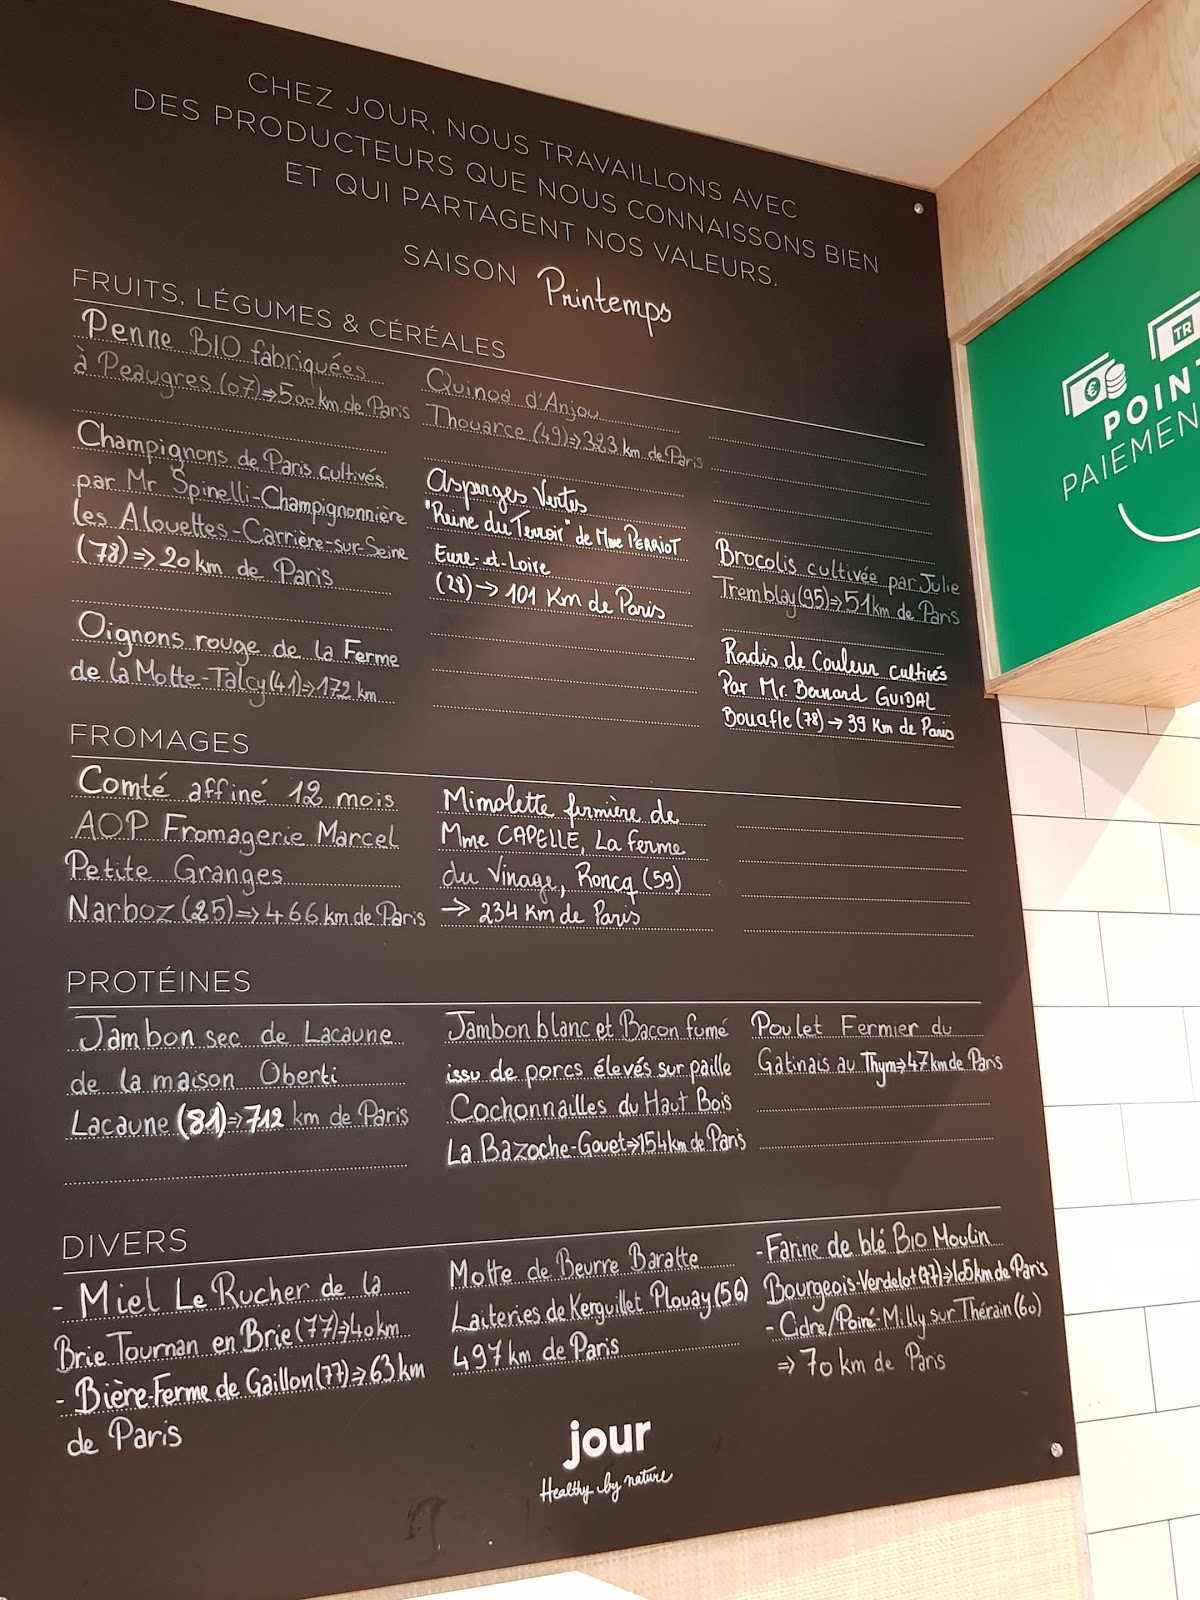 CHEZ JOUR, NOUS TRAVAILLONS AVEC
DES PRODUCTEURS QUE NOUS CONNAISSONS BIEN
ET QUI PARTAGENT NOS VALEURS.
SAISON Printemps
FRUITS, LÉGUMES & CÉRÉALES
Penne BIO fabriquées
à Peaugres (07)⇒500km de Paris
Champignons de Paris cultivés
par Mr Spinelli-Champignonnière
les Alouettes-Carrière-sur-Seine
(78)⇒20km de Paris
Oignons rouge de la Ferme
de la Motte-Talcy(41)⇒172 km
Quinoa d'Anjou
Thouarce (49)⇒323 km de Paris
Asperges Vertes
"Reine du Terroir" de Mme PERRIOT
Eure-et-Loire
(28)→101 Km de Paris
Brocolis cultivée par Julie
Tremblay(95)⇒51km de Paris
Radis de Couleur cultivés
Par Mr. Bernard GUIDAL
Bouafle (78)→39 Km de Paris
FROMAGES
Comté affiné 12 mois
AOP Fromagerie Marcel
Petite Granges
Narboz (25)⇒466km de Paris
Mimolette fermière de
Mme CAPELLE, La ferme
du Vinage, Roncq (59)
→ 234 Km de Paris
PROTÉINES
Jambon sec de Lacaune
de la maison Oberti
Lacaune (81)⇒712 km de Paris
Jambon blanc et Bacon fumé
issu de porcs élevés sur paille
Cochonnailles du Haut Bois
La Bazoche-Gouet⇒154km de Paris
Poulet Fermier du
Gatinais au Thym⇒47km de Paris
DIVERS
- Miel Le Rucher de la
Brie Tournan en Brie (77)⇒40km
- Bière-Ferme de Gaillon(77)⇒63km
de Paris
Motte de Beurre Baratte
Laiteries de Kerguillet Plouay(56)
497km de Paris
-Farine de blé BIO Moulin
Bourgeois-Verdelot(77)⇒105km de Paris
- Cidre/Poiré-Milly sur Thérain(60)
⇒70km de Paris
jour
Healthy by nature
TR
€
POINT
PAIEMEN